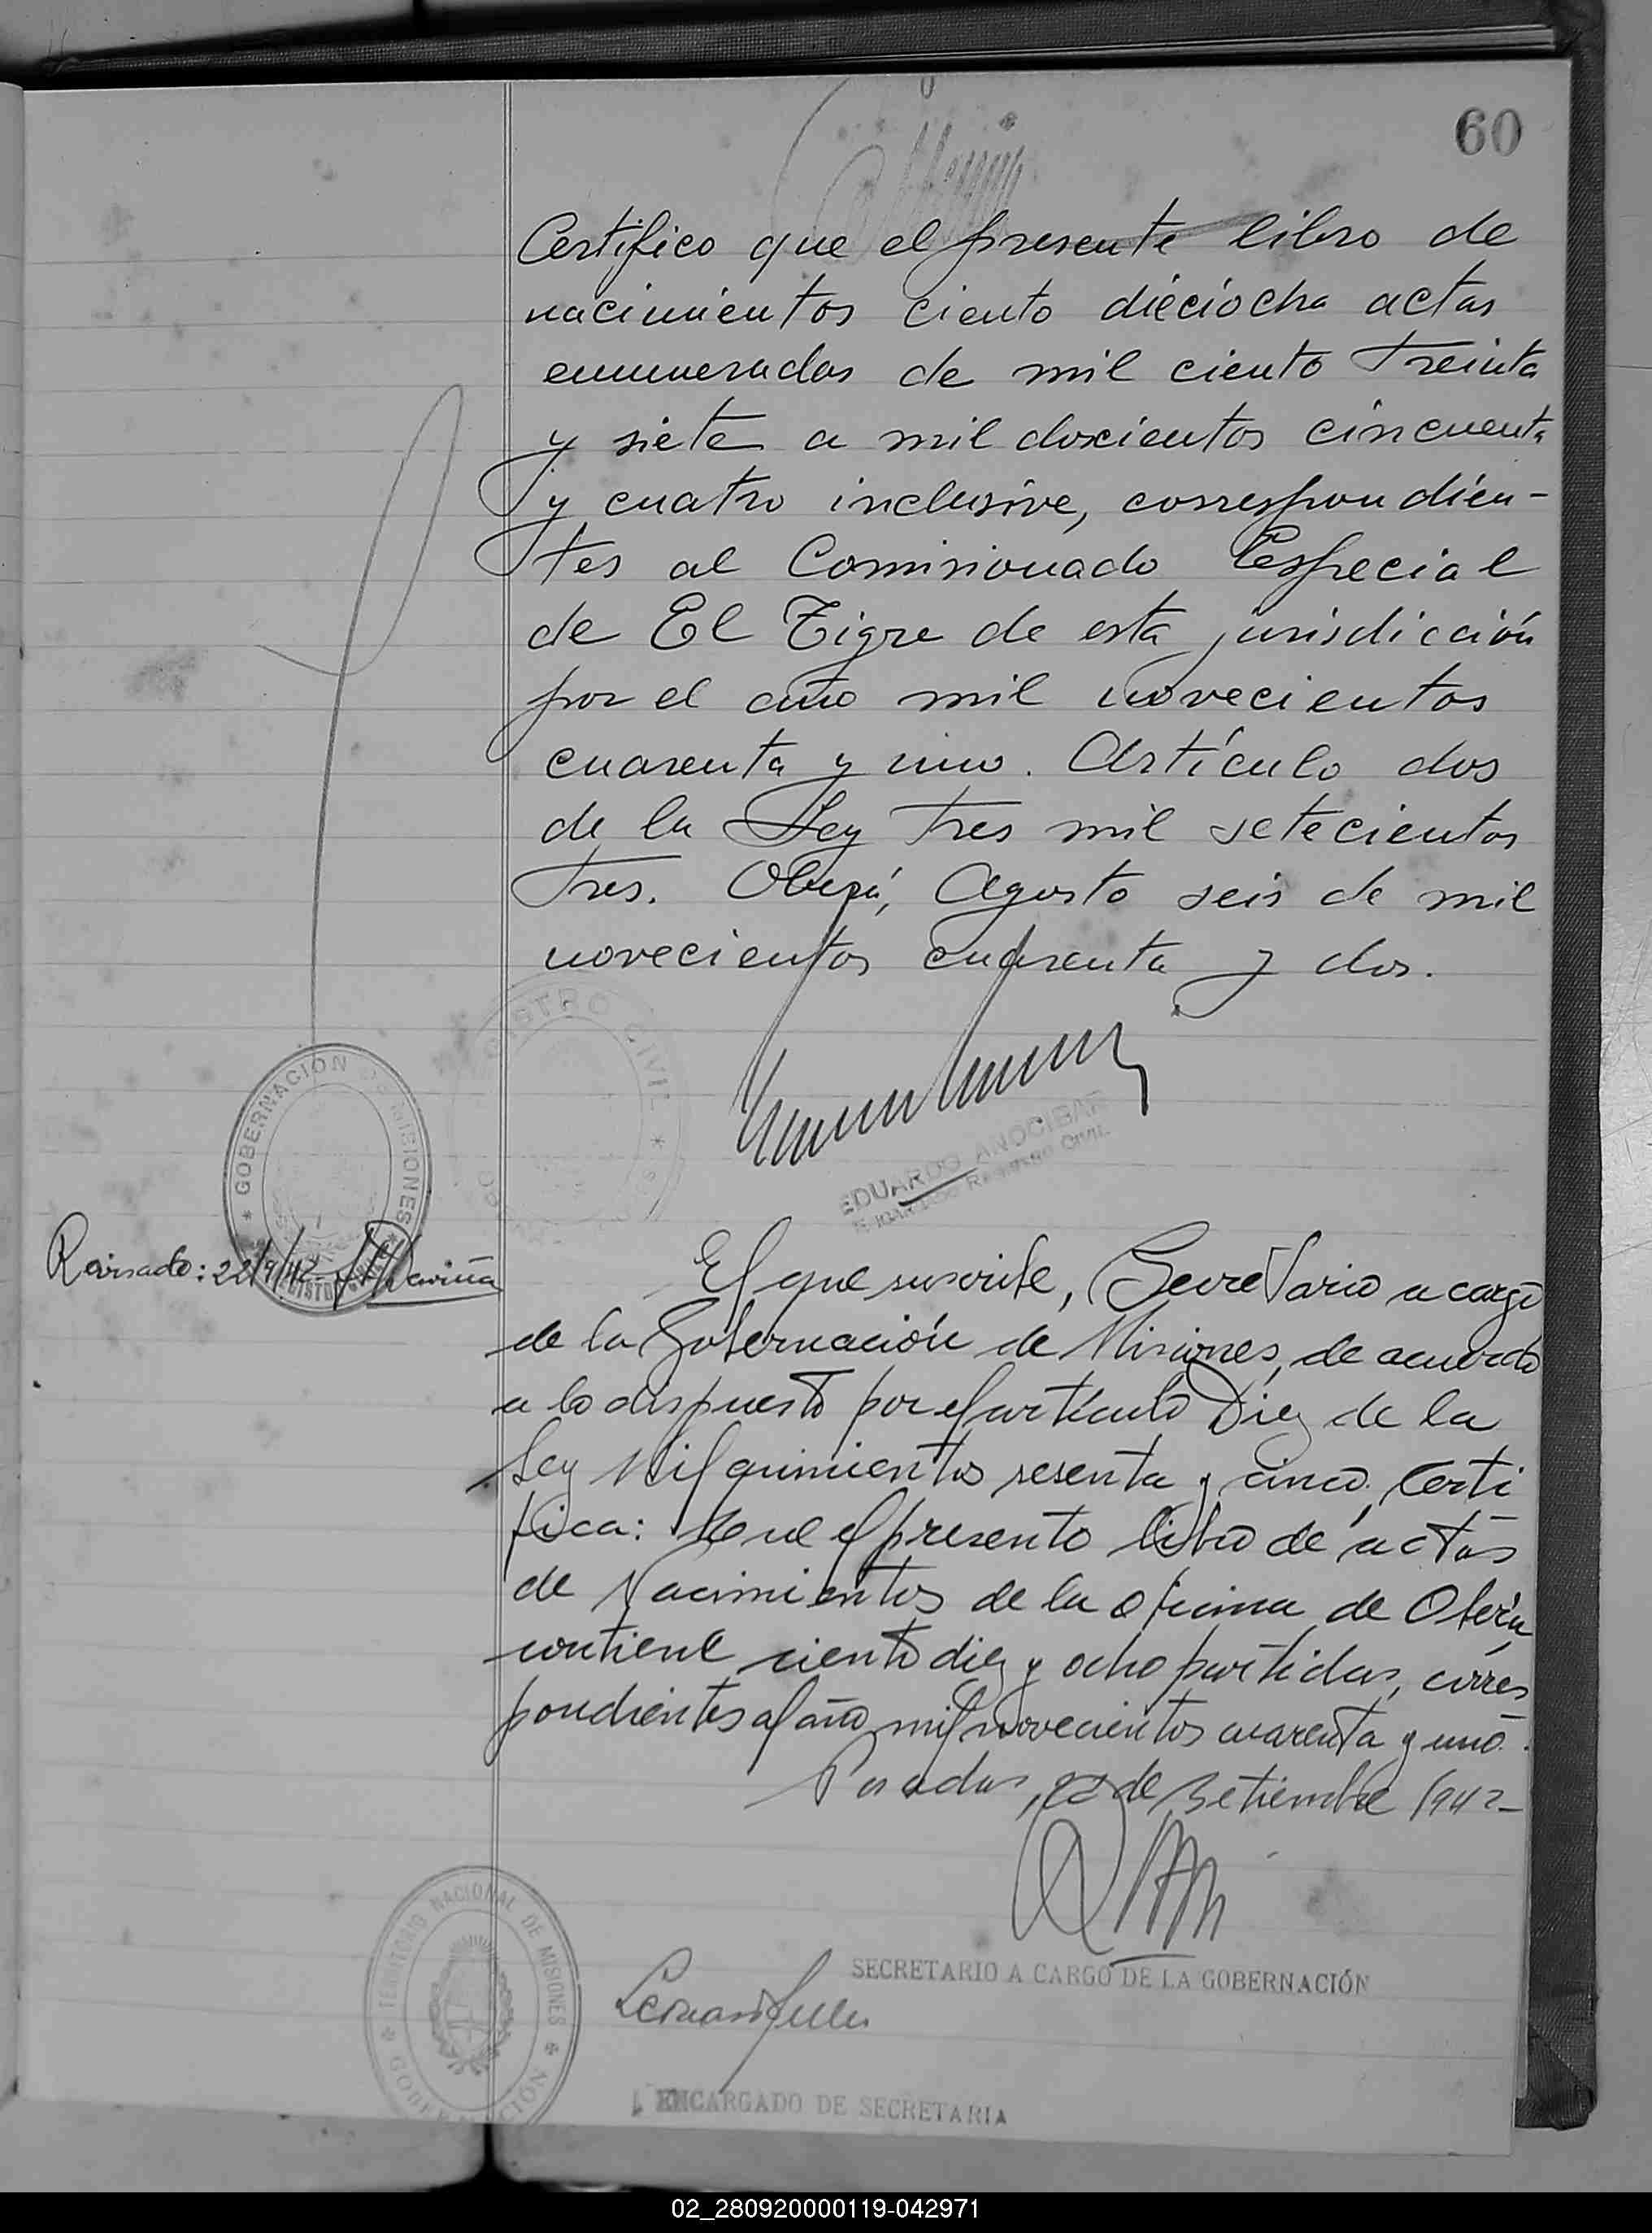 60
Certifico que el presente libro de
nacimientos ciento dieciocho actas
enumeradas de mil ciento treinta
y siete a mil doscientos cincuenta
y cuatro inclusive, correspondien-
tes al Comisionado Especial
de El Tigre de esta jurisdicción
por el año mil novecientos
cuarenta y uno. Artículo dos
de la Ley tres mil setecientos
tres. Oberá, Agosto seis de mil
novecientos cuarenta y dos.
REGISTRO CIVIL
GOBERNACION DE MISIONES
EDUARDO ANOCIBAR
ENCARGADO REGISTRO CIVIL
Revisado: 22/9/42
El que suscribe, Secretario a cargo
de la Gobernación de Misiones, de acuerdo
a lo dispuesto por el artículo Diez de la
Ley Mil quinientos sesenta y cinco, Certi
fica: Que el presente libro de actas
de Nacimientos de la oficina de Oberá,
contiene ciento diez y ocho partidas, corres
pondientes al año mil novecientos cuarenta y uno.
Posadas, 22 de Setiembre 1942-
TERRITORIO NACIONAL DE MISIONES
GOBERNACION
SECRETARIO A CARGO DE LA GOBERNACIÓN
ENCARGADO DE SECRETARIA
02_280920000119-042971